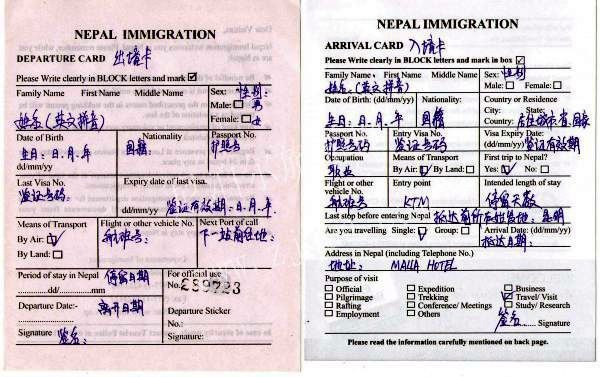 NEPAL IMMIGRATION
DEPARTURE CARD 出境卡
Please Write clearly in BLOCK letters and mark ☑
Family Name First Name Middle Name Sex: 性别:
姓名(英文拼音) Male: 男
Female: 女
Date of Birth Nationality Passport No.
生日:日.月.年 国籍: 护照号
dd/mm/yy
Last Visa No. Expiry date of last visa.
签证号码: 签证有效期:日.月.年.
Means of Transport Flight or other vehicle No. Next Port of call
By Air: ☑ 航班号: 下一站前往地:
By Land:
Period of stay in Nepal 停留日期 For official use
...........dd/..............mm No. 289723
Departure Date:- 离开日期 Departure Sticker
No.:
Signature 签名: Signature:
NEPAL IMMIGRATION
ARRIVAL CARD 入境卡
Please Write clearly in BLOCK letters and mark in box ☑
Family Name First Name Middle Name Sex: 性别
姓名:(英文拼音) Male: Female:
Date of Birth: (dd/mm/yy) Nationality: Country or Residence
City:
生日:日.月.年 国籍 Country: 居住城市,省.国家
Passport No. Entry Visa No. Visa Expiry Date:
护照号码 签证号码 (dd/mm/yy) 签证有效期
Occupation Means of Transport First trip to Nepal?
职业 By Air: ☑ By Land: Yes: ☑ No:
Flight or other vehicle No. Entry point Intended length of stay
航班号 KTM 停留天数
Last stop before entering Nepal 抵达前所在始发地:昆明
Are you travelling Single: ☑ Group: Arrival Date: (dd/mm/yy)
抵达日期:
Address in Nepal (including Telephone No.)
地址: MALLA HOTEL
Purpose of visit
Official Expedition Business
Pilgrimage Trekking ☑ Travel/ Visit
Rafting Conference/ Meetings Study/ Research
Employment Others
签名 Signature
Please read the information carefully mentioned on back page.